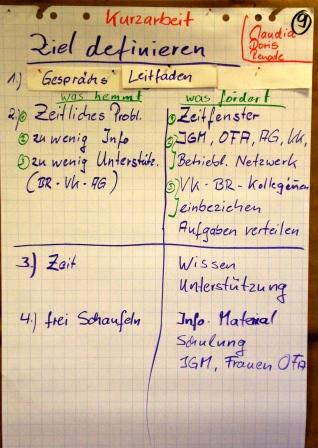 Kurzarbeit
9
Claudia
Doris
Renate
Ziel definieren
1.) Gesprächs Leitfäden
was hemmt
was fördert
2.) ① Zeitliches Probl.
② zu wenig Info
③ zu wenig Unterstütz.
(BR-VK-AG)
① Zeitfenster
② IGM, OFA, AG, VK,
Betriebl. Netzwerk
③ VK-BR-Kolleginnen
einbeziehen
Aufgaben verteilen
3.) Zeit
Wissen
Unterstützung
4.) frei Schaufeln
Info-Material
Schulung
IGM, Frauen OFA